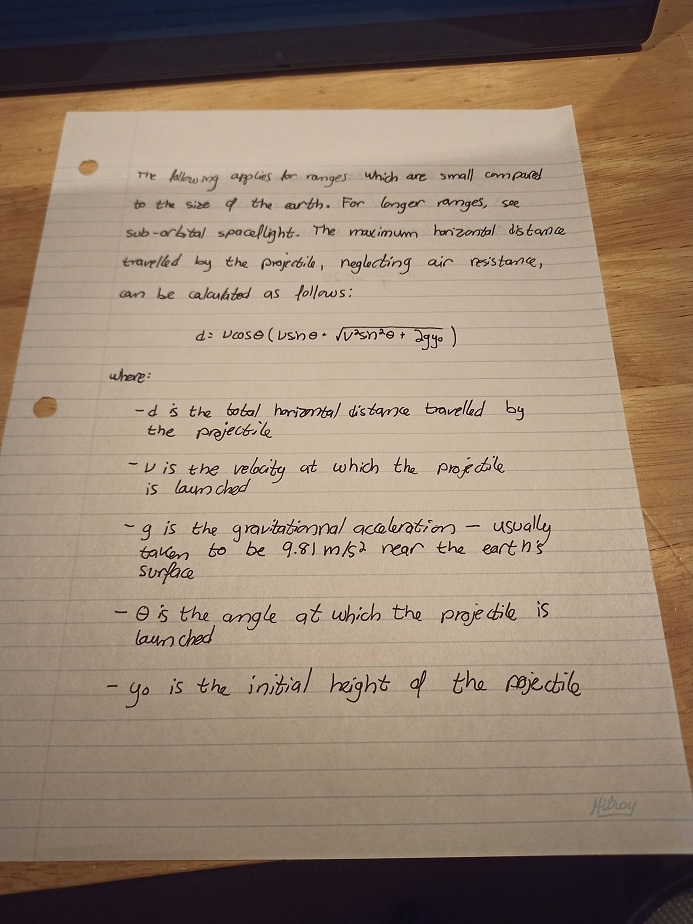 The following applies for ranges which are small compared
to the size of the earth. For longer ranges, see
sub-orbital spaceflight. The maximum horizontal distance
travelled by the projectile, neglecting air resistance,
can be calculated as follows:
d= vcosθ (vsinθ + √v²sin²θ + 2gy₀ )
where:
- d is the total horizontal distance travelled by
the projectile
- v is the velocity at which the projectile
is launched
- g is the gravitationnal acceleration - usually
taken to be 9.81 m/s² near the earth's
surface
- θ is the angle at which the projectile is
launched
- y₀ is the initial height of the projectile
Hilroy